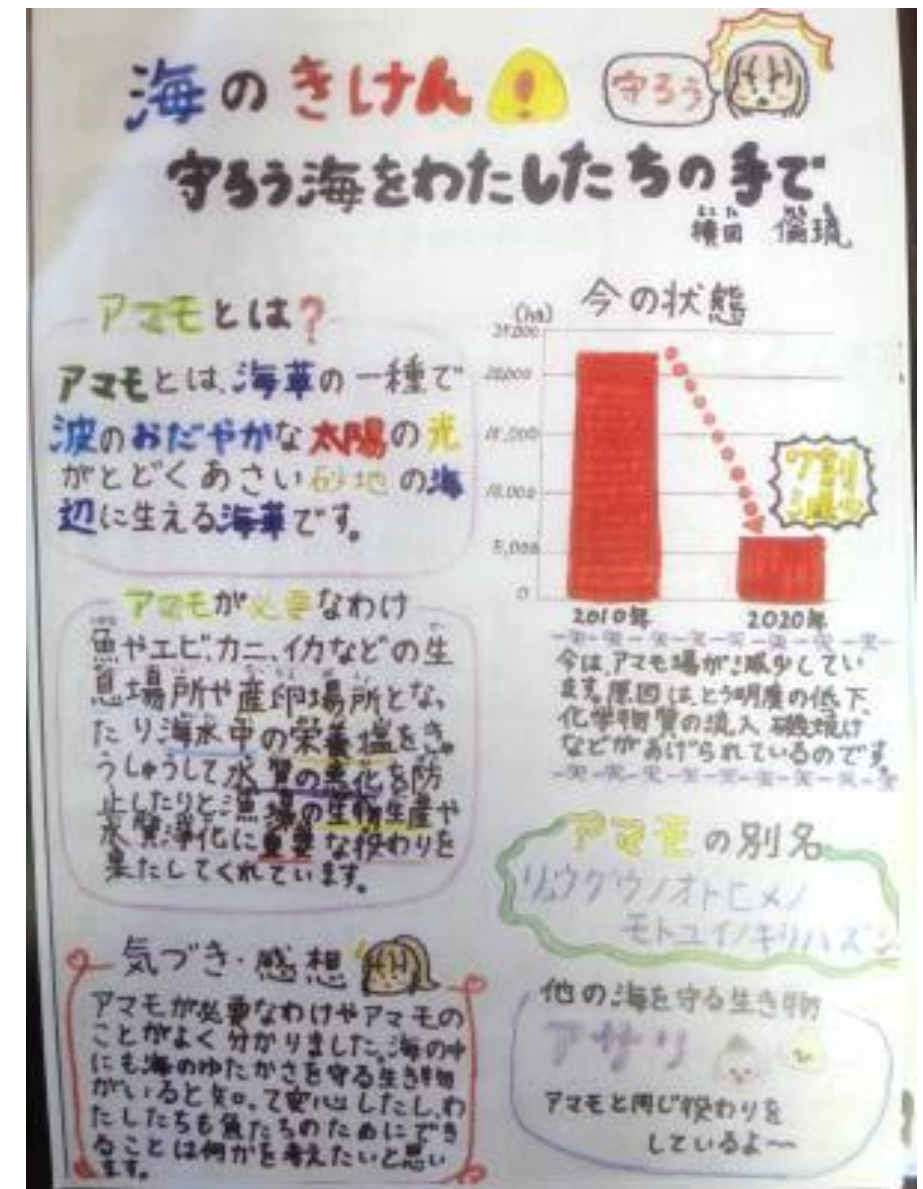 海のきけん!
守ろう
守ろう海をわたしたちの手で
アマモとは?
アマモとは、海草の一種で
波のおだやかな太陽の光
がとどくあさい砂地の海
辺に生える海草です。
アマモが必要なわけ
魚やエビ、カニ、イカなどの生
息場所や産卵場所となっ
たり海水中の栄養塩をきゅ
うしゅうして水質の悪化を防
止したりと漁場の生物生産や
水質浄化に重要な役わりを
果たしてくれています。
気づき・感想
アマモが必要なわけやアマモの
ことがよく分かりました。海の中
にも海のゆたかさを守る生き物
がいると知って安心したし、わ
たしたちも魚たちのためにでき
ることは何かを考えたいと思い
ます。
今の状態
(ha)
25,000
20,000
15,000
10,000
5,000
0
2010年
2020年
7割
減少
今は、アマモ場が減少してい
ます。原因は、とう明度の低下、
化学物質の流入、磯焼け
などがあげられているのです。
アマモの別名
リュウグウノオトヒメノ
モトユイノキリハズシ
他の海を守る生き物
アサリ
アマモと同じ役わりを
しているよ〜